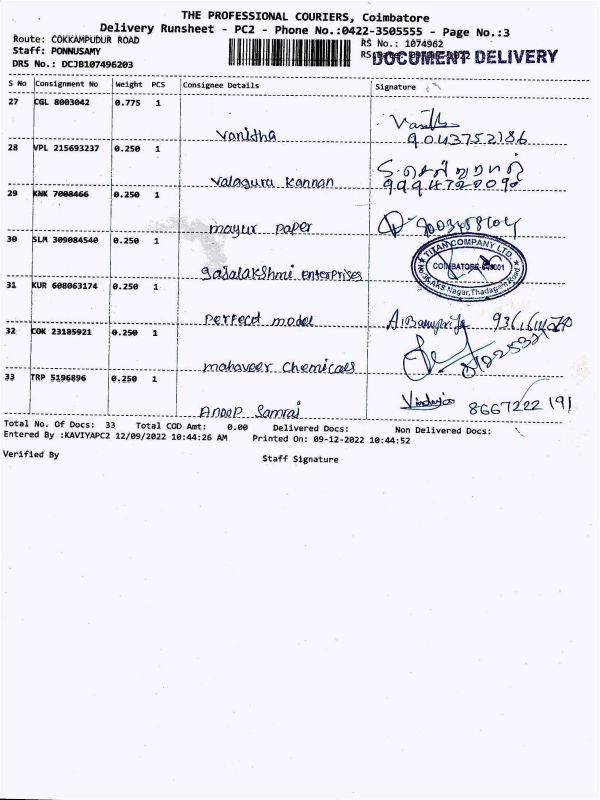 THE PROFESSIONAL COURIERS, Coimbatore
Delivery Runsheet - PC2 - Phone No.:0422-3505555 - Page No.:3
Route: COKKAMPUDUR ROAD
RS No.: 1074962
Staff: PONNUSAMY
DOCUMENT DELIVERY
DRS No.: DCJB107496203
S No Consignment No Weight PCS Consignee Details Signature
27 CGL 8003042 0.775 1
Vanitha 9043752186
28 VPL 215693237 0.250 1
Valaguru Kannan
29 KNK 7008466 0.250 1
mayur paper
30 SLM 309084540 0.250 1
TITAN COMPANY LTD.
COIMBATORE-641001
No.36, AKS Nagar, Thadagam Road
gajalakshmi enterprises
31 KUR 608063174 0.250 1
perfect model
32 COK 23185921 0.250 1
mahaveer chemicals
33 TRP 5196896 0.250 1
Anoop Samraj 8667222 191
Total No. Of Docs: 33 Total COD Amt: 0.00 Delivered Docs: Non Delivered Docs:
Entered By :KAVIYAPC2 12/09/2022 10:44:26 AM Printed On: 09-12-2022 10:44:52
Verified By Staff Signature